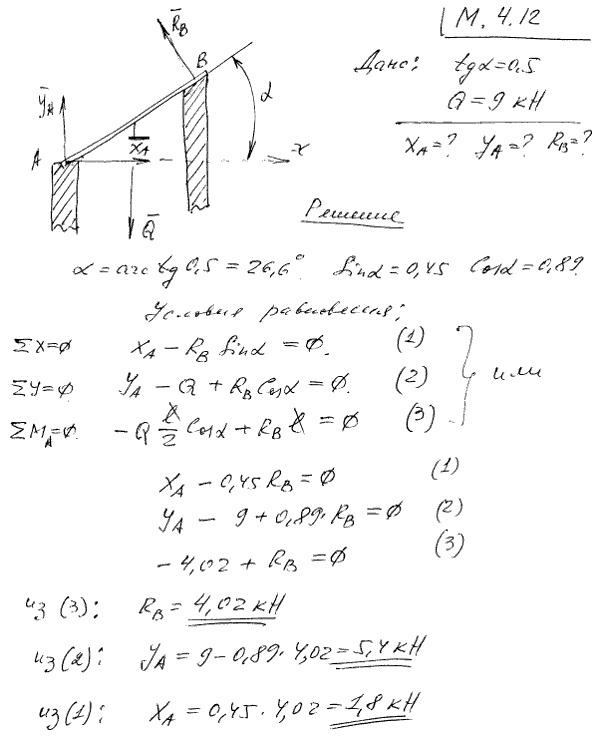 М. 4.12
Дано: tgα=0.5
Q = 9 кН
X_A=? Y_A=? R_B=?
R̄_B
B
Ȳ_A
α
A
X̄_A
x
Q̄
Решение
α = arctg 0,5 = 26,6° Sinα = 0,45 Cosα = 0,89.
Условия равновесия:
ΣX=0 X_A − R_B Sinα = 0. (1)
ΣY=0 Y_A − Q + R_B Cosα = 0. (2) } или
ΣM_A=0. −Q ℓ/2 Cosα + R_B ℓ = 0 (3)
X_A − 0,45 R_B = 0 (1)
Y_A − 9 + 0,89·R_B = 0 (2)
−4,02 + R_B = 0 (3)
из (3): R_B = 4,02 кН
из (2): Y_A = 9 − 0,89·4,02 = 5,4 кН
из (1): X_A = 0,45·4,02 = 1,8 кН